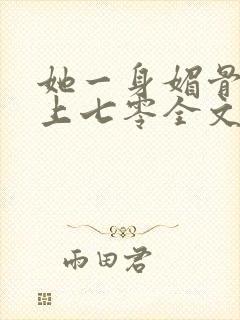 她一身媚骨
上七零全文
雨田君